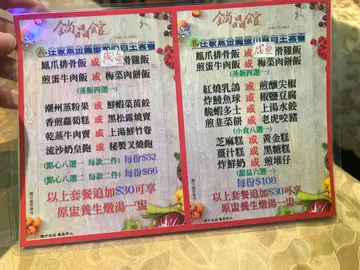 鳳爪排骨飯 或 咸魚 滑雞飯
煎蛋牛肉飯 或 梅菜肉餅飯
(蒸飯四選一)
潮州蒸粉果 或 鮮蝦菜苗餃
香煎蘿蔔糕 或 黑松露燒賣
乾蒸牛肉賣 或 上湯鮮竹卷
流沙奶皇飽 或 秘製叉燒飽
(點心八選一 每款二件) 每份$52
(點心八選二 每款二件) 每份$66
以上套餐追加$30可享
原盅養生燉湯一盅
鳳爪排骨飯 或 咸魚 滑雞飯
煎蛋牛肉飯 或 梅菜肉餅飯
(蒸飯四選一)
紅燒乳鴿 或 煎釀尖椒
炸鯪魚球 或 椒鹽豆腐
脆蝦多士 或 上湯水餃
煎韮菜餅 或 老虎咬豬
(小食八選一)
芝麻糕 或 黃金糕
薑汁糕 或 黑糖糕
炸鮮奶 或 煎堆仔
(甜品六選一)
每份$108
以上套餐追加$30可享
原盅養生燉湯一盅